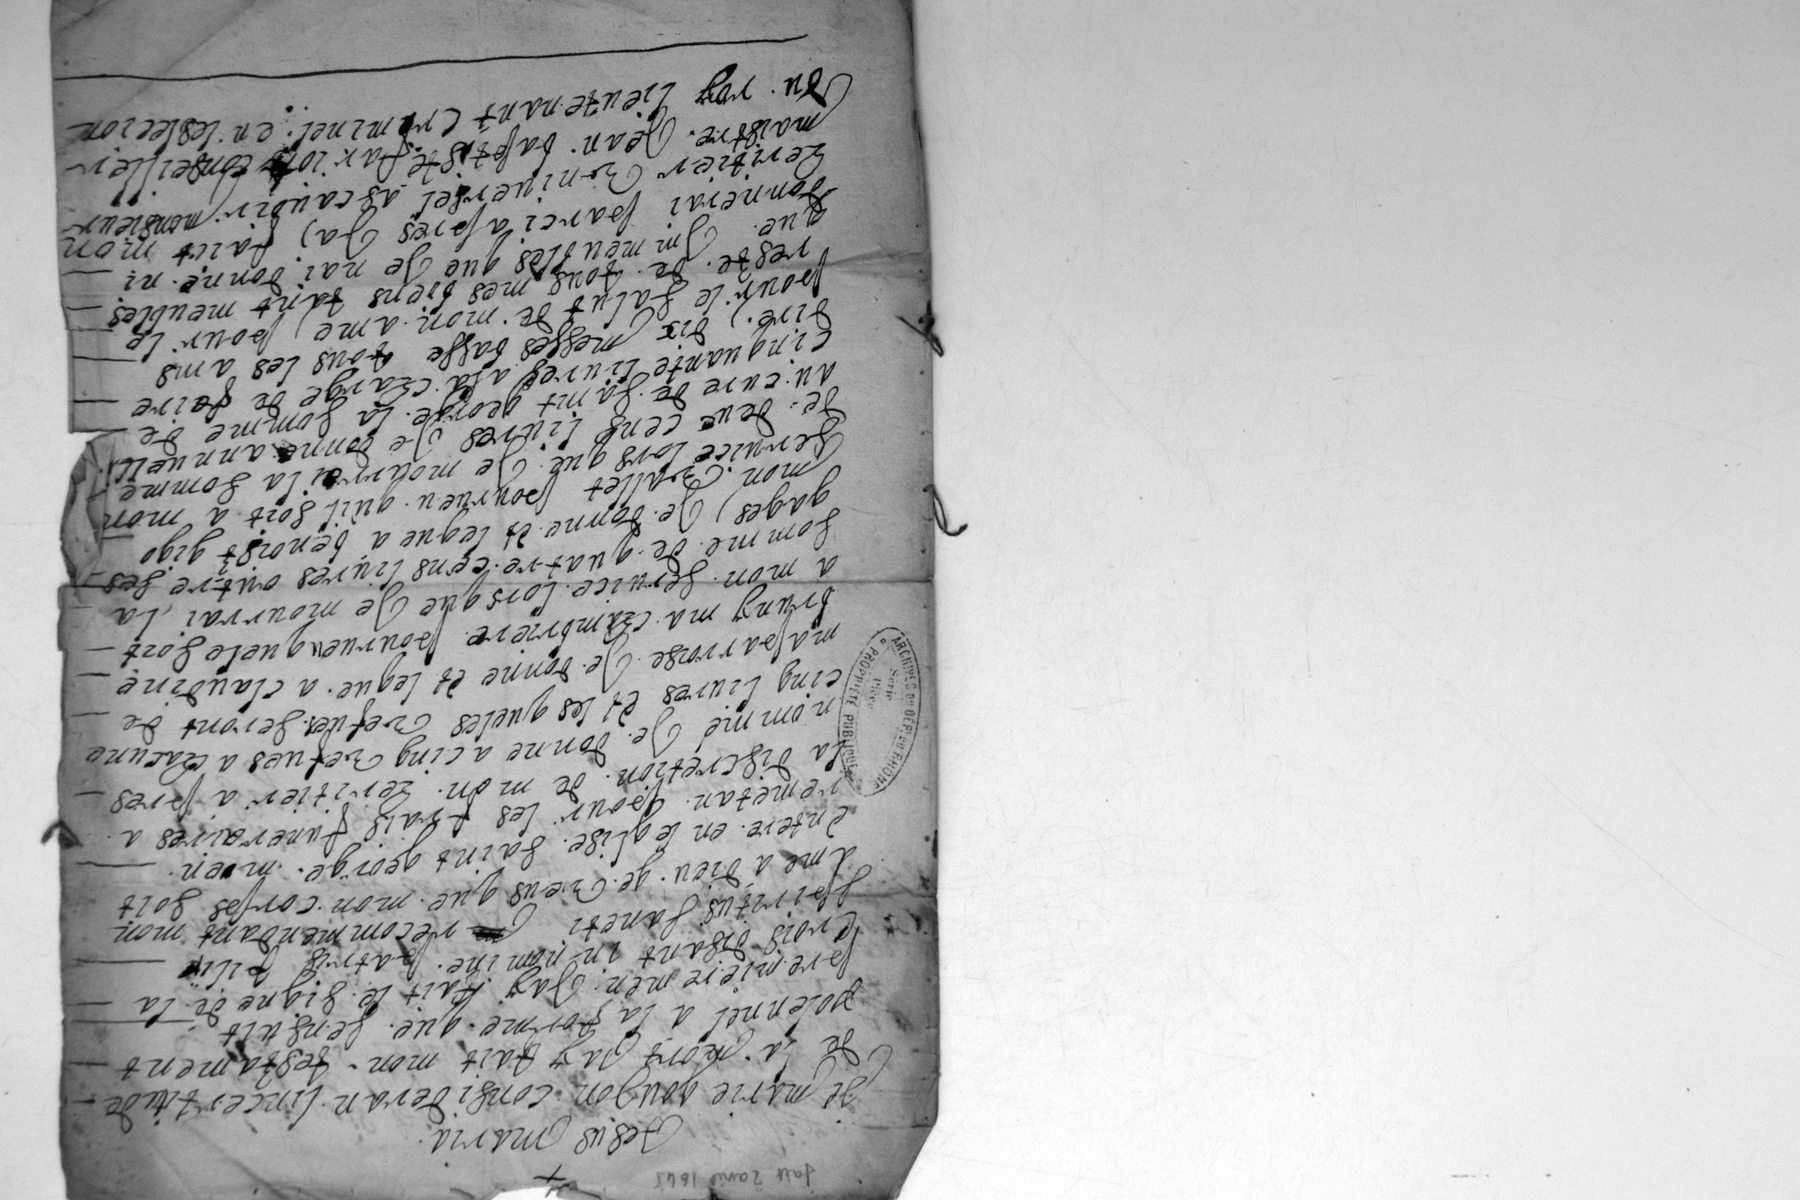 Jesus Maria
Je marie goujon consideran lincertitude
de la mort Jay fait mon testament
solennel a la forme que sensuit
premierement Jay fait le signe de la
Crois disant in nomine patris filii
spiritus sancti recommendant mon
ame a dieu ge veus que mon corps soit
entere en leglise saint george men
remetan pour les frais funeraires a
la discretion de mon heritier a pres
nommé Je donne a cinq vefves a chacune
cinq livres et les queles vefves seront de
ma parroisse Je donne et legue a claudine
bruny ma chambriere pourveu quele soit
a mon service lors que Je mourrai La
somme de quatre cens livres outre ses
gages Je donne et legue a benoist gigo
mon vallet pourveu quil soit a mon
service lors que Je mourrai la somme
de deux cens livres Je donne annuell
au cure de saint george la somme de
cinquante livres a la charge de faire
dire dix messes basse tous les ans
pour le salut de mon ame pour le
reste de tous mes biens tant meubles
que Jmmeubles que Je nai donne ni
donnerai par ci apres Ja fait mon
heritier universel ascavoir monsieur
maistre Jean baptiste conseiller
du roy lieutenant criminel en leslection
ARCHIVES DU DEP. DU RHONE
PROPRIETE PUBLIQUE
Serie